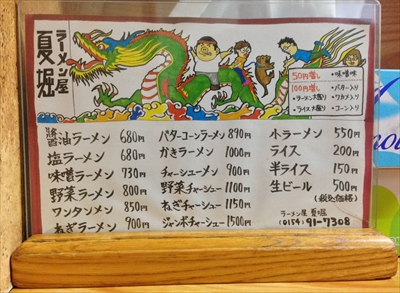 ラーメン屋
夏堀
50円増し
・味噌味
100円増し
・バター入り
・ラーメン大盛り
・ワカメ入り
・ライス大盛り
・コーン入り
醤油ラーメン 680円
塩ラーメン 680円
味噌ラーメン 730円
野菜ラーメン 800円
ワンタンメン 850円
ねぎラーメン 900円
バターコーンラーメン 890円
かきラーメン 1000円
チャーシューメン 900円
野菜チャーシュー 1100円
ねぎチャーシュー 1150円
ジャンボチャーシュー 1500円
小ラーメン 550円
ライス 200円
半ライス 150円
生ビール 500円
(税込価格)
ラーメン屋 夏堀
(0154)91-7308